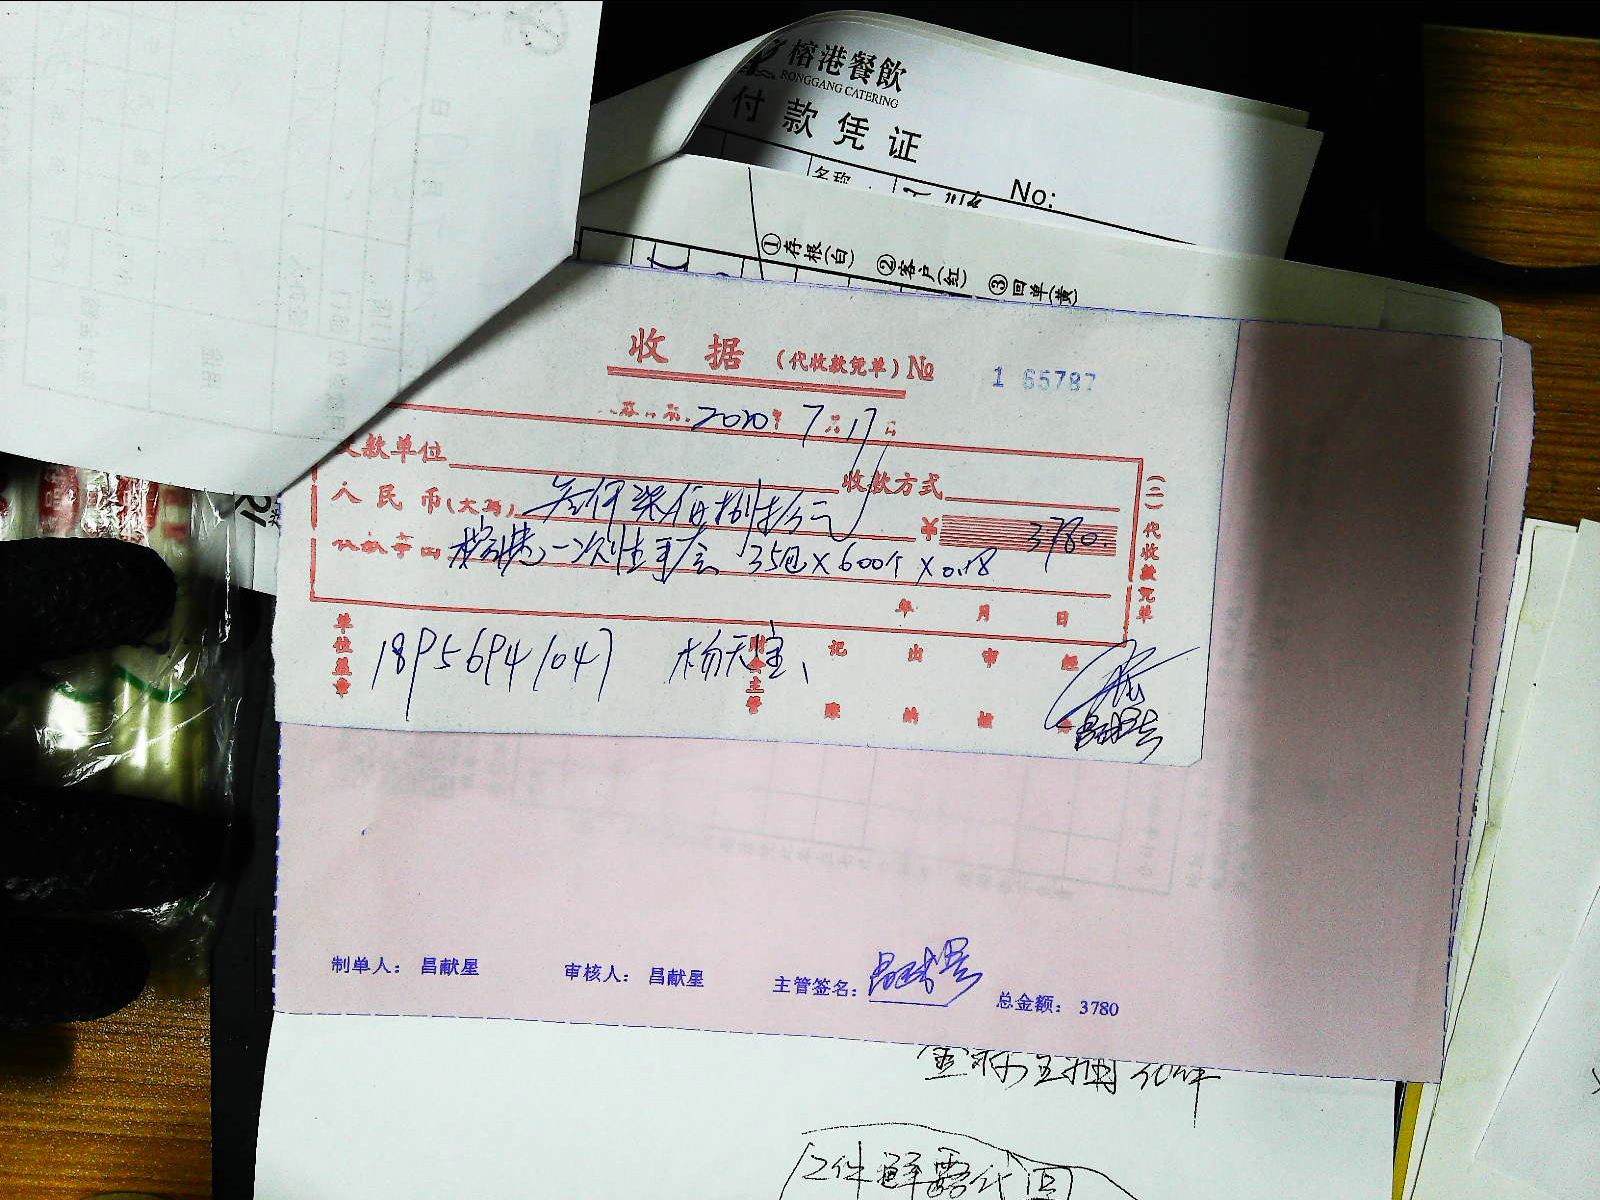 榕港餐飲
RONGGANG CATERING
付款凭证
名称
No:
①存根(白) ②客户(红) ③回单(黄
收 据 (代收款凭单) № 165787
2020年7月17日
款单位 收款方式
人民币(大写) 叁仟柒佰捌拾元 ¥ 3780.
一次性手套 35包×600个×0.18
年 月 日
(二)代收款凭单
单位盖章 财会主管 记账 出纳 审核 经
18956941047 杨天宝、
昌献星
制单人: 昌献星 审核人: 昌献星 主管签名: 昌献星 总金额: 3780
12件鲜露代